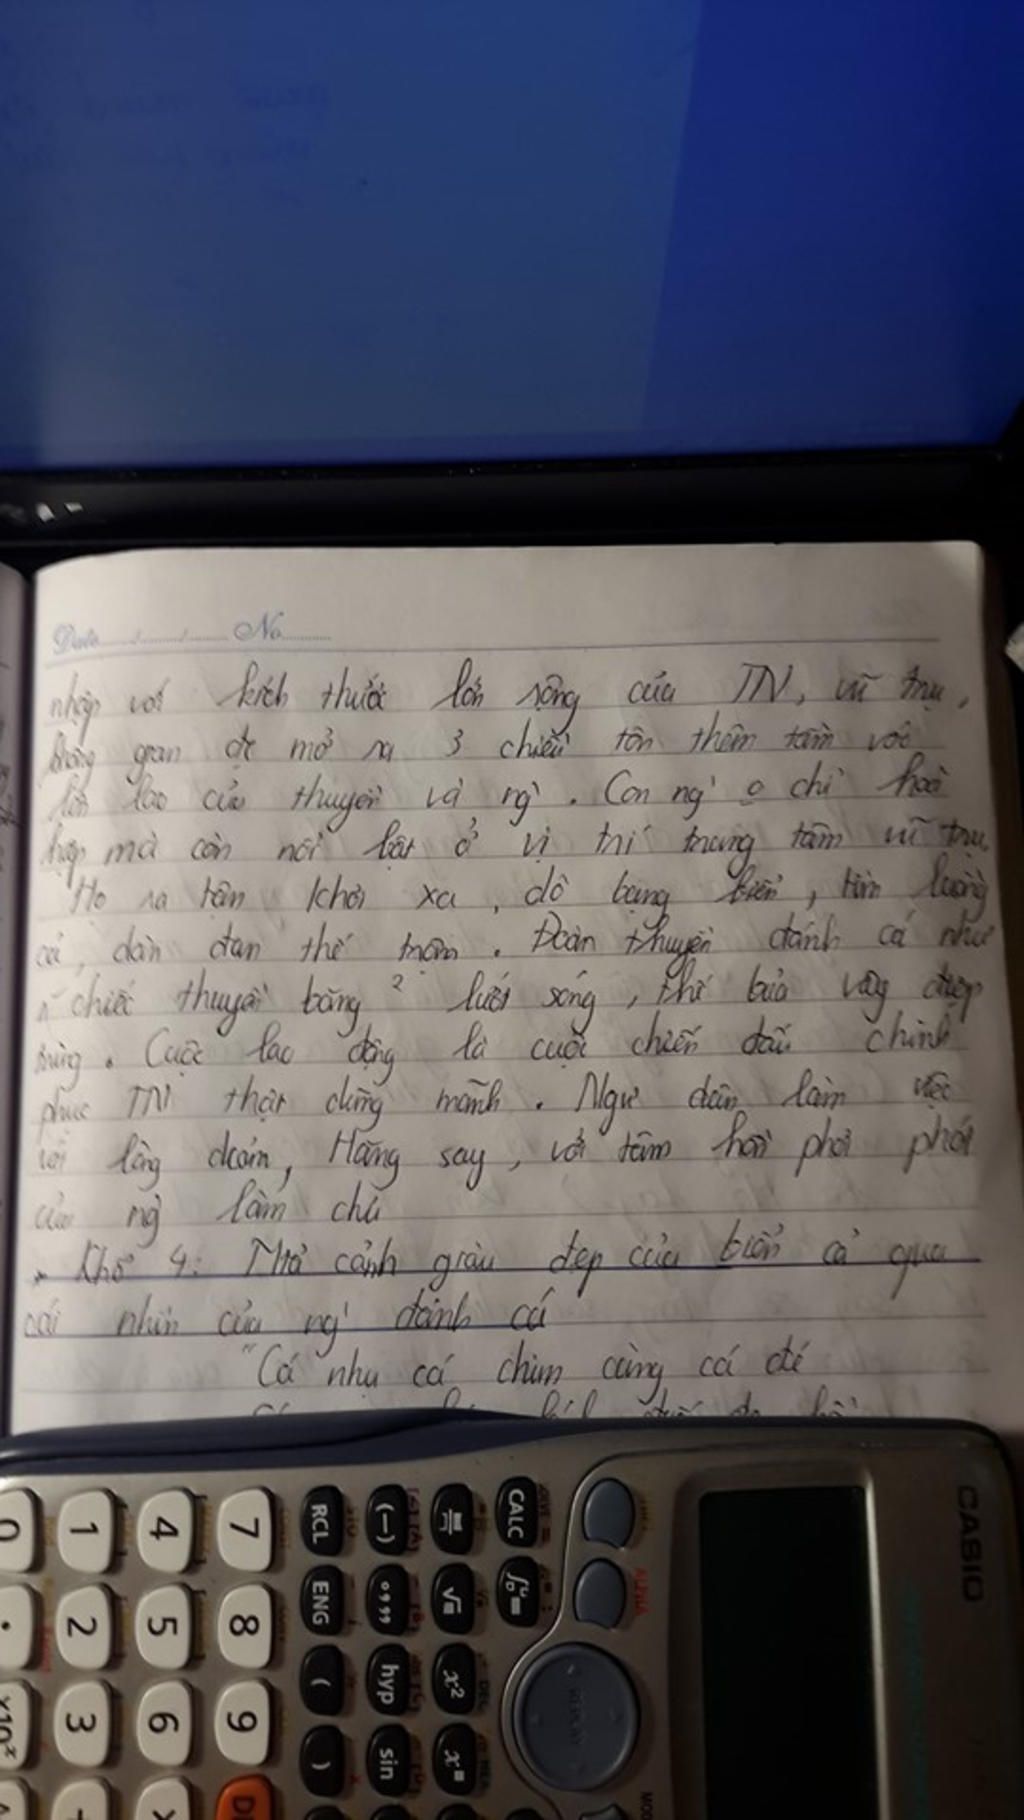 Date No
nhập với kích thước lớn rộng của TN, vũ trụ,
không gian đc mở ra 3 chiều tôn thêm tầm vóc
lớn lao của thuyền và ng`. Con ng` o chỉ hoà
hợp mà còn nổi bật ở vị trí trung tâm vũ trụ.
Họ ra tận khơi xa, dò bụng biển, tìm luồng
cá, dàn đan thế trận. Đoàn thuyền đánh cá như
chiếc thuyền băng ² lướt sóng, thế bủa vây điệp
trùng. Cuộc lao động là cuộc chiến đấu chinh
phục TN thật dũng mãnh. Ngư dân làm việc
với lòng dcảm, Hăng say, với tâm hồn phơi phới
của ng` làm chủ
Khổ 4: Mtả cảnh giàu đẹp của biển cả qua
cái nhìn của ng` đánh cá
"Cá nhụ cá chim cùng cá đé
CASIO
CALC
RCL (—)
ENG °,,, √
( hyp x²
) sin
7 4 1 0
8 5 2 .
9 6 3 ×10ˣ
REPLAY
ALPHA